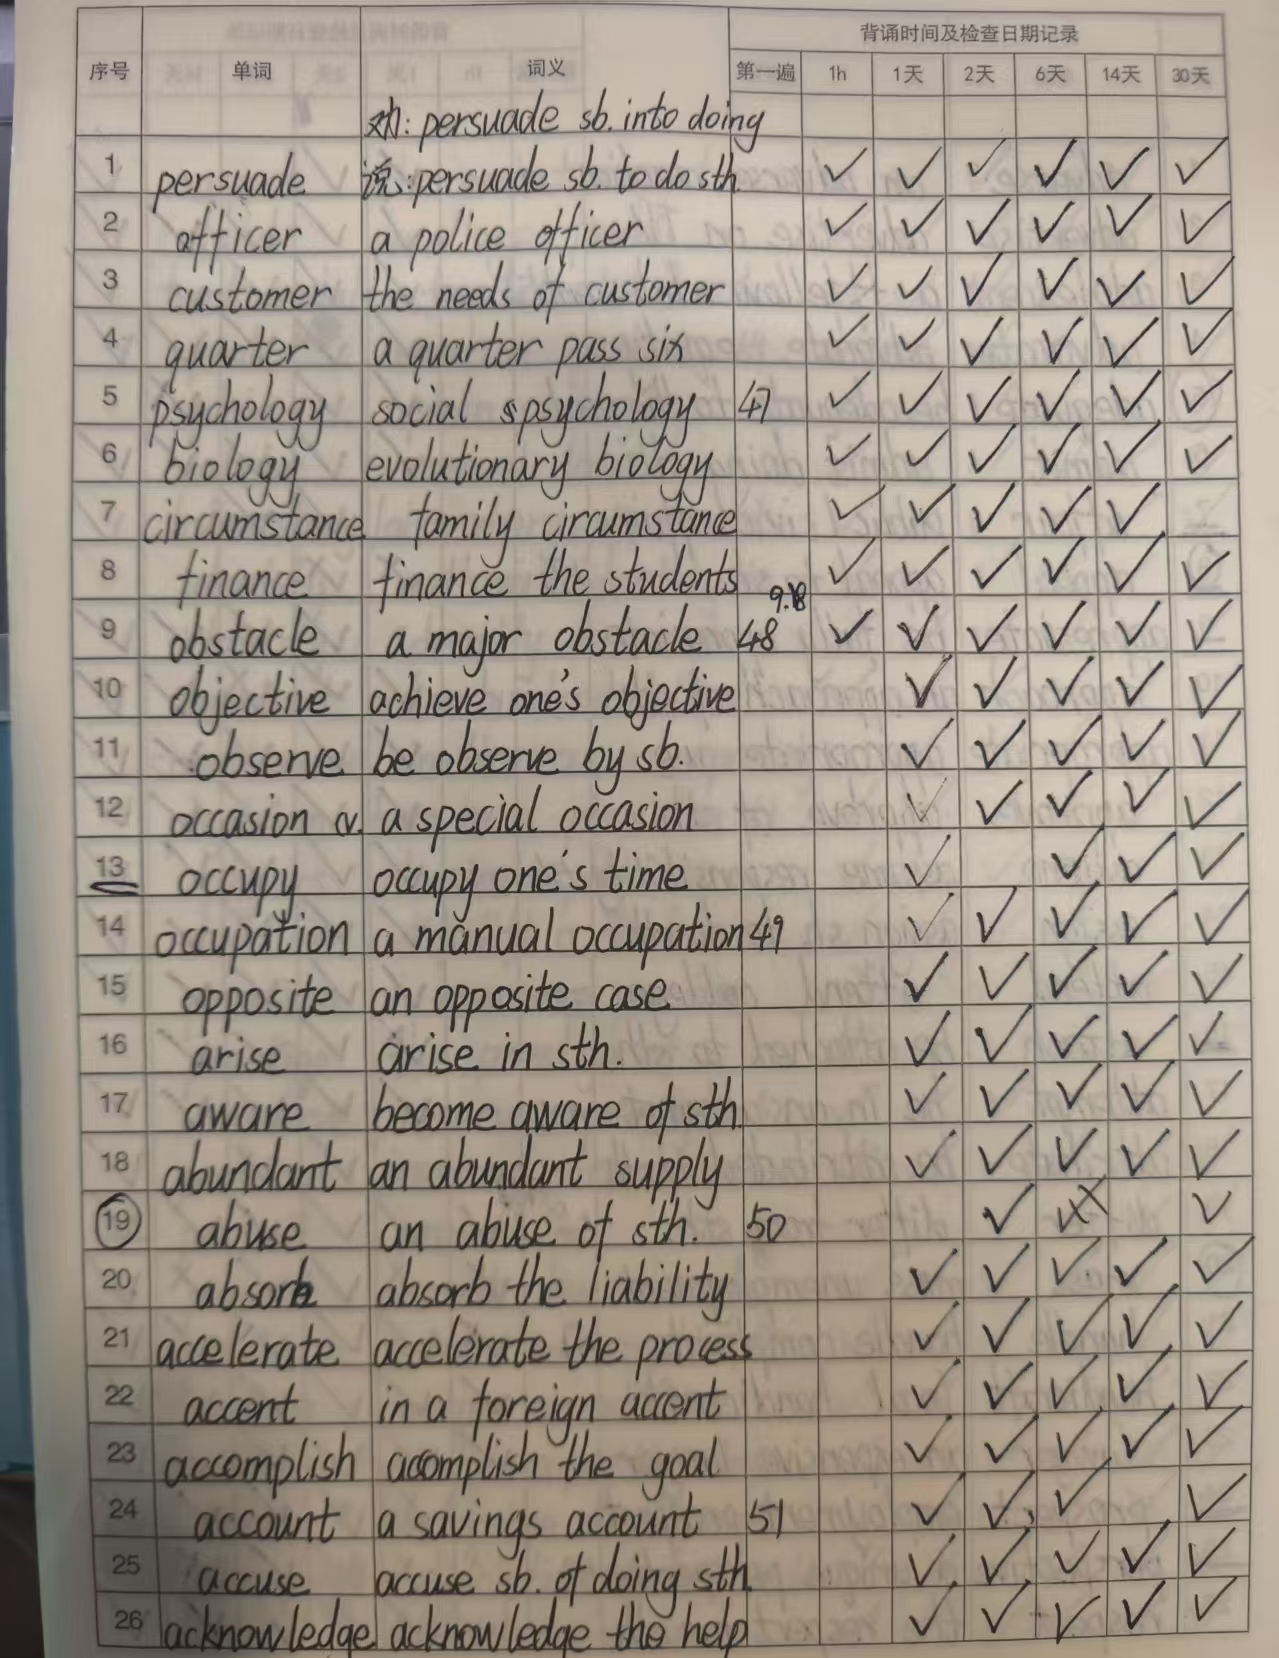 背诵时间及检查日期记录
序号 单词 词义 第一遍 1h 1天 2天 6天 14天 30天
劝: persuade sb. into doing
1 persuade 说: persuade sb. to do sth
2 officer a police officer
3 customer the needs of customer
4 quarter a quarter pass six
5 psychology social psychology 47
6 biology evolutionary biology
7 circumstance family circumstance
8 finance finance the students
9.18
9 obstacle a major obstacle 48
10 objective achieve one's objective
11 observe be observe by sb.
12 occasion v. a special occasion
13 occupy occupy one's time
14 occupation a manual occupation 49
15 opposite an opposite case
16 arise arise in sth.
17 aware become aware of sth
18 abundant an abundant supply
19 abuse an abuse of sth. 50
20 absorb absorb the liability
21 accelerate accelerate the process
22 accent in a foreign accent
23 accomplish acomplish the goal
24 account a savings account 51
25 accuse accuse sb. of doing sth
26 acknowledge acknowledge the help